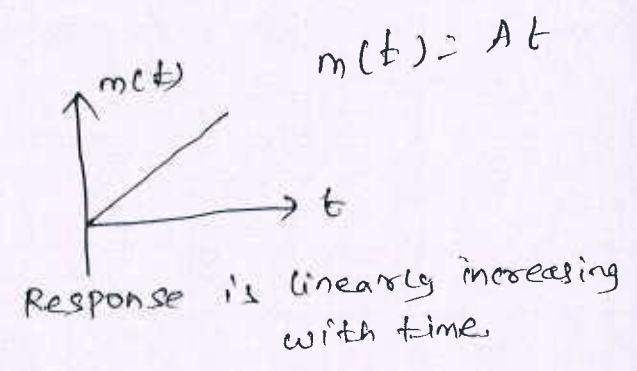 m(t) = At
m(t)
t
Response is linearly increasing
with time